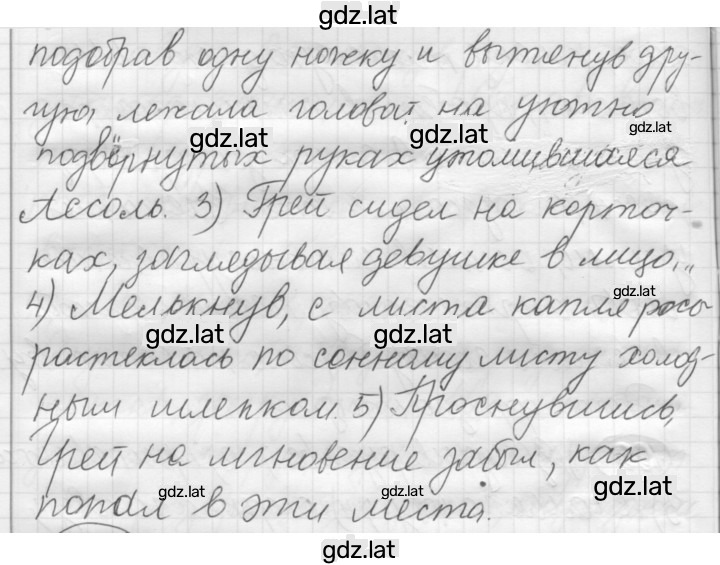 gdz.lat
подобрав одну ножку и вытянув дру-
гую, лежала головой на уютно
gdz.lat gdz.lat gdz.lat
подвёрнутых руках утомившаяся
Ассоль. 3) Грей сидел на корточ-
ках, заглядывая девушке в лицо..
gdz.lat
4) Мелькнув, с листа капля росы
gdz.lat gdz.lat
растеклась по сонному листу холод-
ным шлепком 5) Проснувшись,
Грей на мгновение забыл, как
gdz.lat gdz.lat gdz.lat
попал в эти места.
gdz.lat